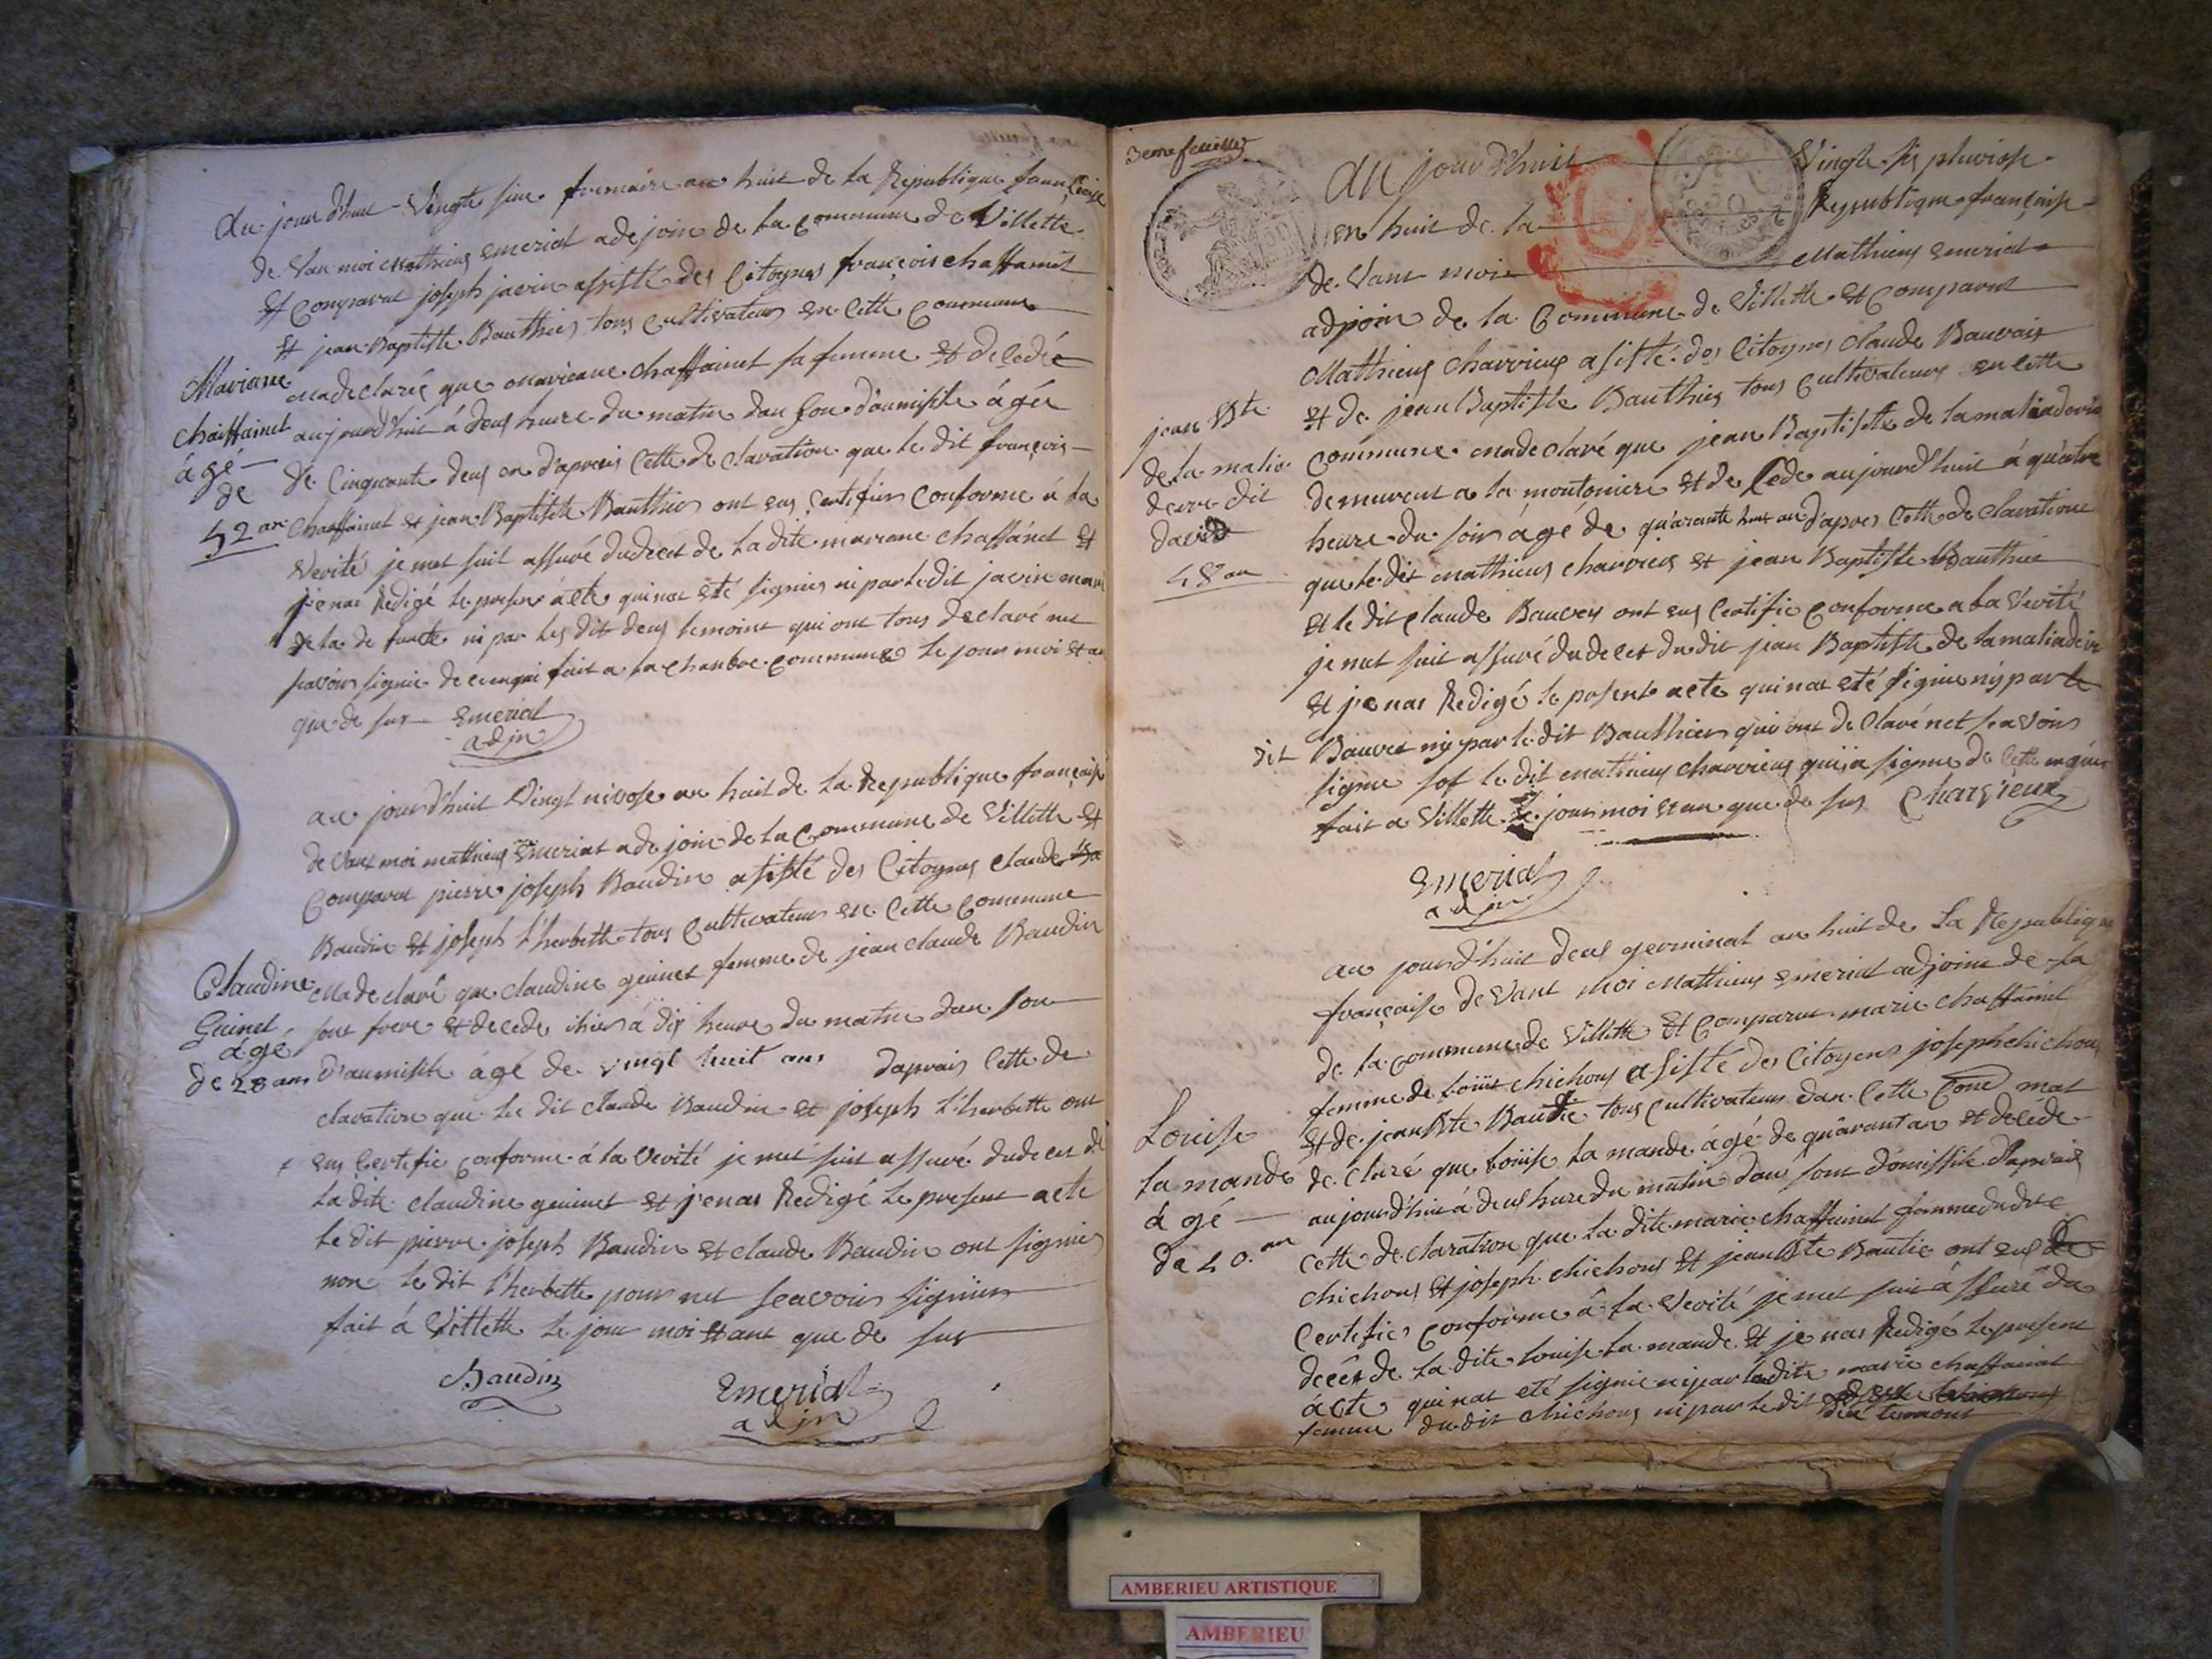 au jour d'huit Vingte sin frimaire an huit de la Republique francoise
de Van moi Mathieu Emeriat adejoin de la Commune de Villette
Et Comparut joseph javin assisté des Citoynes françois chaffainet
Et jean Baptiste Bauthier tous Cultivateurs en Cette Commune
Mariane chaffainet
âgé de
52 an
ma declaréé que mariane chaffainet sa femme Et decedée
aujourd'huit á deus heure du matin dan son domissile âgéé
de Cinquante deus an d'apres Cette declaration que le dit françois
chaffainet et jean Baptiste Bauthier ont eus Certifier Conforme á la
Verité je met suit assuré dudeces de la dite mariane chaffainet Et
j'enai Redigé le present acte qui nas Eté signier ni par le dit javin mari
de la defuncte ni par les dit deus temoint qui ont tous declaré net
seavoir signie de fait a la chambre commune le jour moi et an
que de sur Emeriat
adjn
au jour d'huit Vingt nivose an huit de la Republique française
de Vant moi mathieu Emeriat adejoin de la Commune de Villette Et
Comparut pierre joseph Baudin assisté des Citoynes claude Ba
Baudin Et joseph l'herbette tous Cultivateurs en Cette Commune
Claudine
Guinet
âgé
de 28 ans
ma declaré que claudine guinet femme de jean claude Baudin
sont frere Et decede ihier á dix heure du matin dan son
d'aumisile âgé de vingt huit ans dapres Cette de
claration que les dit claude Baudin et joseph l'herbette ont
eus Certifie Conforme á la Verité je met suit assuré dudeces de
la dite claudine guinet Et j'enai Redigé le present acte
le dit pierre joseph Baudin Et claude Baudin ont signier
non le dit l'herbette pour net seavoir signier
fait á Villette le jour moi Et ant que de sur
Baudin
Emeriat
adjn
3eme feuillet
au jour d'huit Vingte six pluviose
en huit de la Republique française
de Vant moi Mathieu Emeriat
adjoin de la Commune de Villette Et Comparut
Mathieu Charvieux assisté des Citoynes claude Bauvais
Et de jean Baptiste Bauthier tous Cultivateurs en Cette
jean Bte
de la
dit
david
48 an
Commune ma declaré que jean Baptiste de
demeurent a la moutoniere Et decede aujourd'huit á quatre
heure du soir âgé de quarante huit an d'apres Cette declaration
que le dit mathieu charvieux Et jean Baptiste Bauthier
Et le dit Claude Bauvey ont eus Certifie Conforme a la Verité
je met suit assuré dudeces du dit jean Baptiste de
Et j'enai Redigé le present acte qui nas eté signie ny par le
dit Bauvet ny par le dit Bauthier qui ont declaré net seavoir
signie sof le dit mathieu charvieux qui a signie de
fait a Villette le jour moi et an que de sus Charvieux
Emeriat
adjn
au jour d'huit deus germinal an huit de La Republique
française de Vant Moi Mathieu Emeriat adjoint de la
de la commune de Villette Et Comparut marie chaffainet
femme de chichoux assisté des Citoyens joseph chichoux
Et de jean Bte Bautie tous Cultivateurs dan Cette Cone mat
Louise
la mande
âgé
de 40 an
declaré que louise la mande âgé de quarant an Et decede
aujourd'huit á deus hure du matin dans sont domissile D'apres
Cette declaration que la dite marie chaffainet femme dudit
chichoux Et joseph chichoux Et jean Bte Bautie ont eus
Certifier Conforme á la Verité je met suit assuré du
deces de la dite louise la mande Et je nai Redigé le present
acte qui nas eté signie ni par la dite marie chaffainet
femme du dit chichoux ni par le dit temoint
AMBERIEU ARTISTIQUE
AMBERIEU